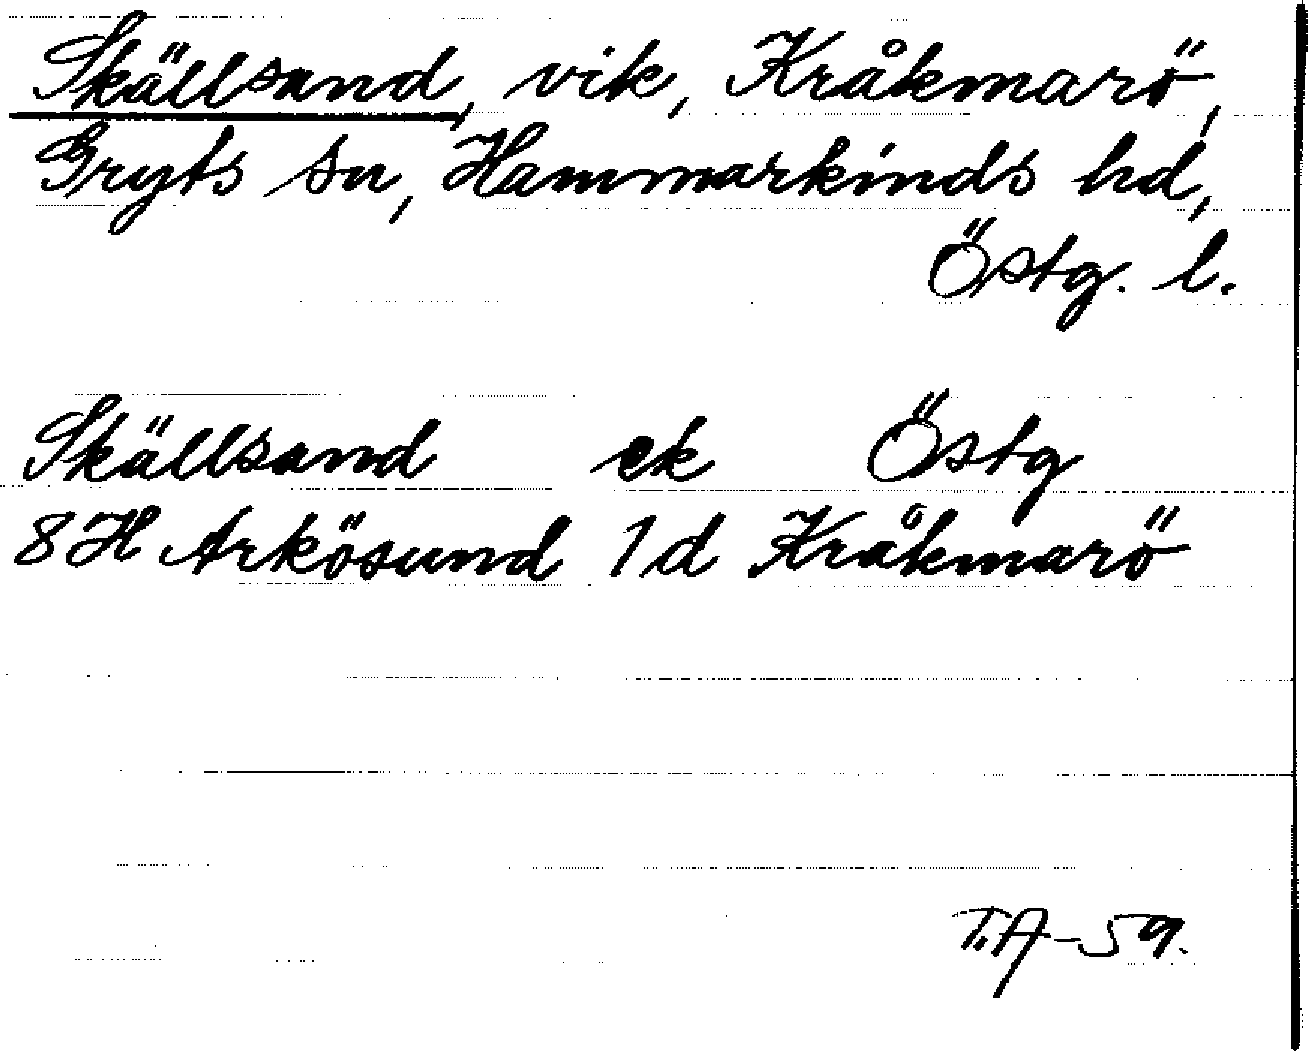 Skällsand, vik, Kråkmarö,
Gryts sn, Hammarkinds hd,
Östg. l.
Skällsand ek Östg
8H Arkösund 1d Kråkmarö
T.A-59.